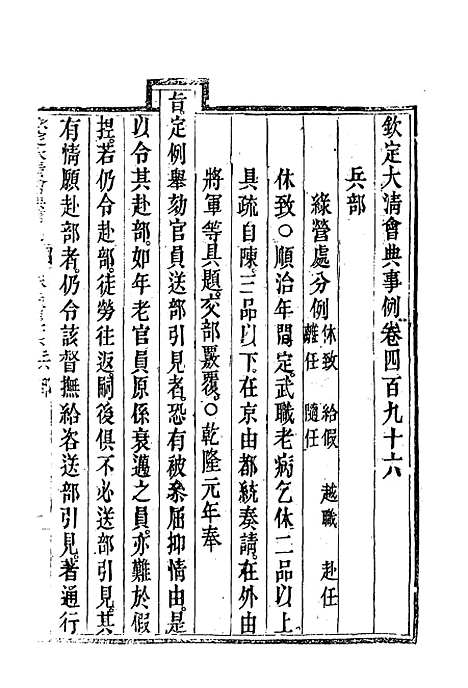 欽定大清會典事例卷四百九十六
兵部
綠營處分例休致 給假 越職 赴任
離任 隨任
休致○順治年間定。武職老病乞休二品以上。
具疏自陳。三品以下。在京由都統奏請。在外由
將軍等具題。交部覈覆。○乾隆元年奉
旨定例舉劾官員送部引見者。恐有被叅屈抑情由。是
以令其赴部。如年老官員原係衰邁之員。亦難於假
捏。若仍令赴部。徒勞往返。嗣後俱不必送部引見。其
有情願赴部者。仍令該督撫給咨送部引見。著通行